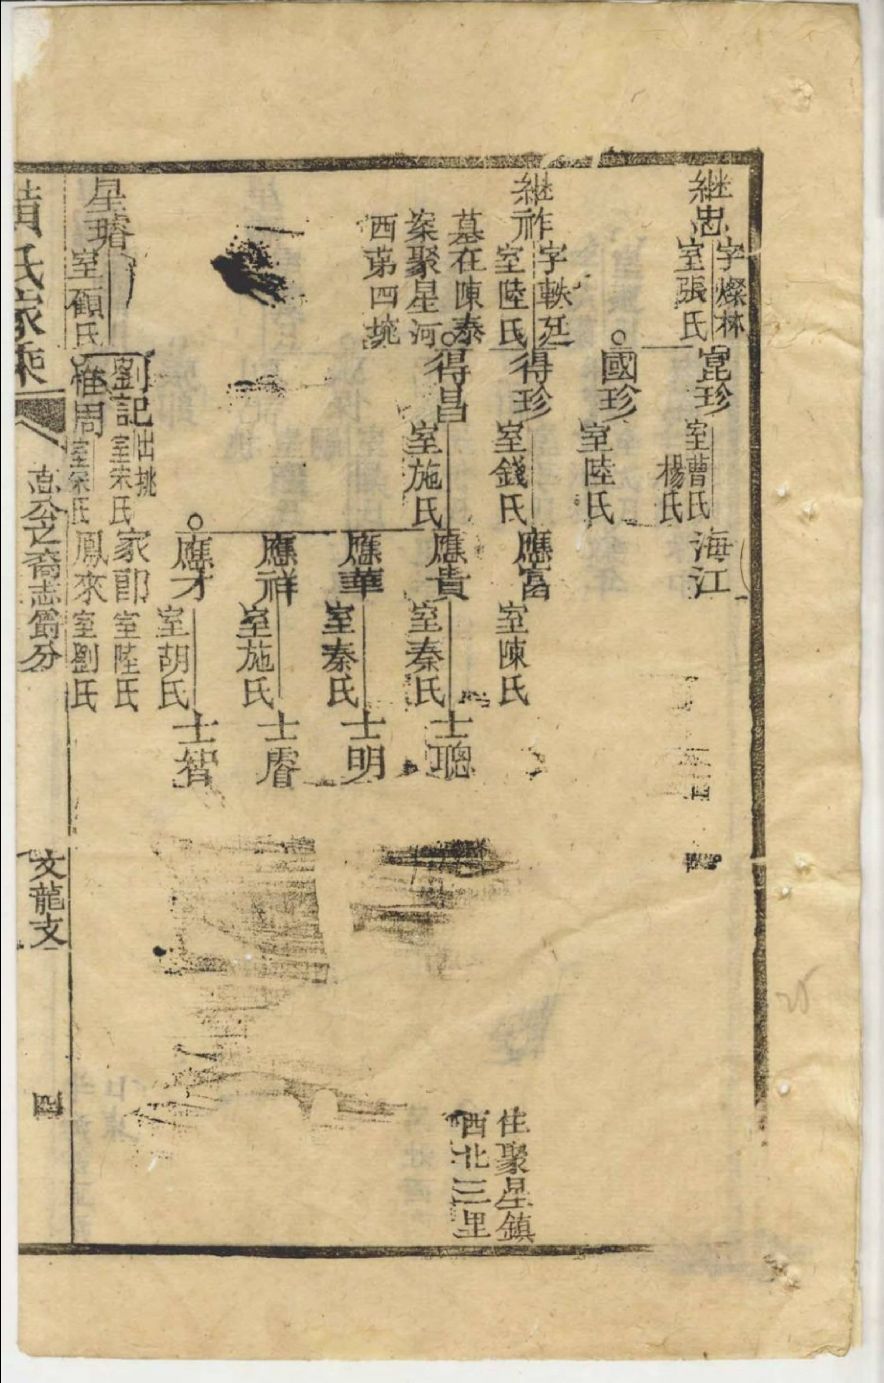 継忠
字燦林
室張氏
崑珍
室曹氏
楊氏
海江
國珍
室陸氏
継祚
字軼廷
室陸氏
墓在陳泰
案聚星河
西苐四垗
得珍
室錢氏
應富
室陳氏
住聚星鎮
西北三里
得昌
室施氏
應貴
室秦氏
士聰
應華
室秦氏
士明
應祥
室施氏
士睿
應才
室胡氏
士智
星璿
室顧氏
劉記
出挑
室宋氏
家郎
室陸氏
維周
室宋氏
鳳來
室劉氏
氏家乘
公之裔志爵分
文龍支
四